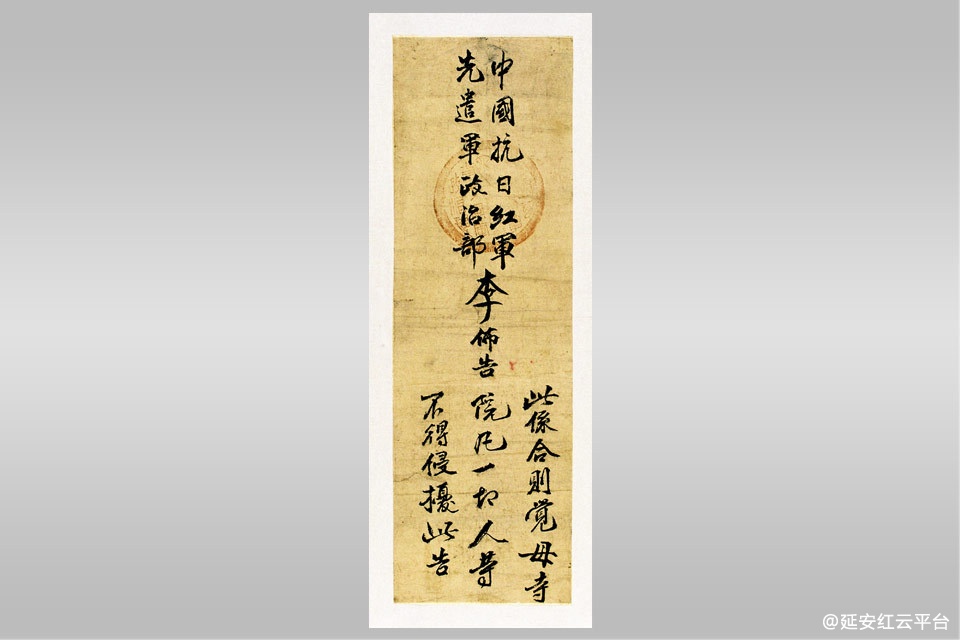 中國抗日紅軍
先遣軍政治部
李佈告
此係合則覺母寺
院凡一切人等
不得侵擾此告
@延安红云平台